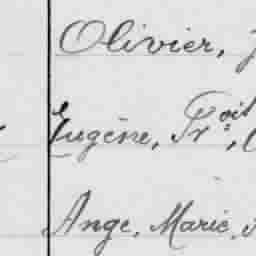 Olivier, J
Eugène, Fr.oit,
Ange, Marie,